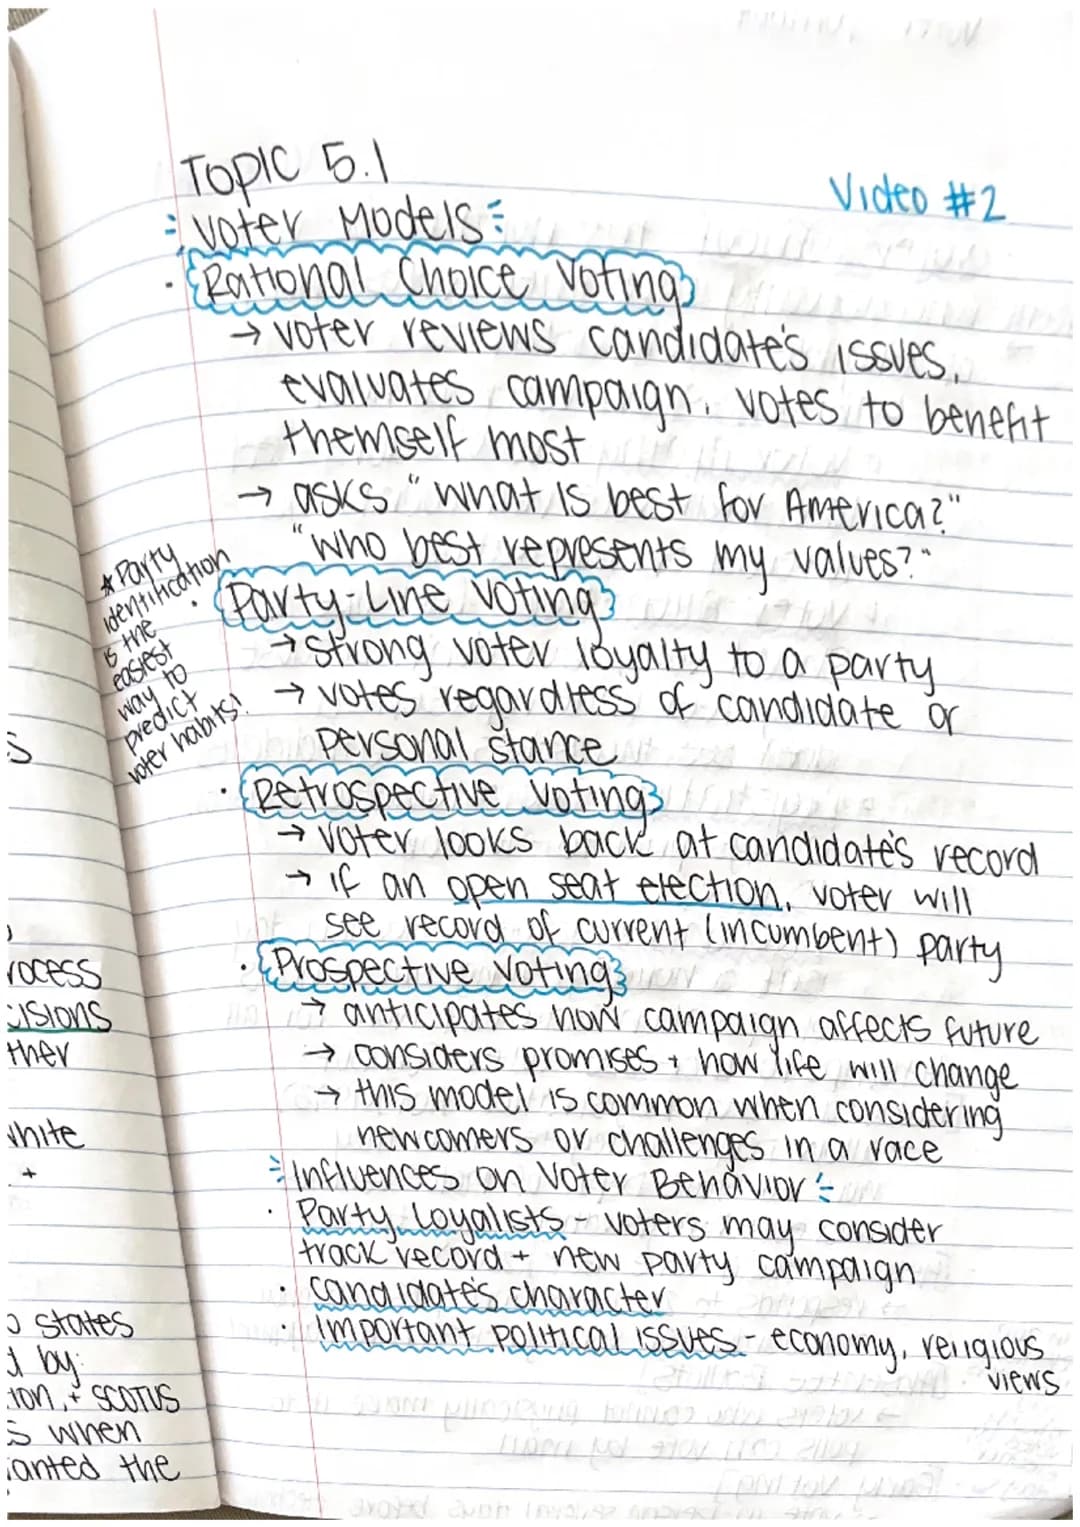 Topic 5.1
Video #2
Voter Models
· Rational Choice Voting
→ voter reviews candidate's issues,
evaluates campaign, votes to benefit
themself most
→ asks "what is best for America?"
"who best represents my values?"
* Party
identification
is the
easiest
way to
predict
voter habits!
· Party-Line Voting
→ strong voter loyalty to a party
→ votes regardless of candidate or
personal stance
· Retrospective Voting
→ voter looks back at candidate's record
→ if an open seat election, voter will
see record of current (incumbent) party
· Prospective Voting
→ anticipates how campaign affects future
→ considers promises + how life will change
→ this model is common when considering
newcomers or challenges in a race
Influences on Voter Behavior
· Party Loyalists - voters may consider
track record + new party campaign
· candidate's character
· important political issues - economy, religious
views
s
rocess
cisions
ther
white
+
o states
d by:
ion, + SCOTUS
s when
anted the